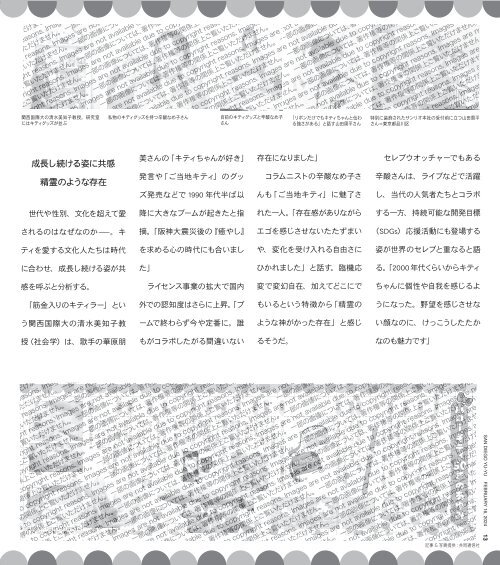 関西国際大の清水美知子教授。研究室
にはキティグッズが並ぶ
私物のキティグッズを持つ辛酸なめ子さん
自前のキティグッズと辛酸なめ子
さん
「リボンだけでもキティちゃんと伝わ
る強さがある」と話す山田周平さん
特別に装飾されたサンリオ本社の受付前に立つ山田周平
さん=東京都品川区
成長し続ける姿に共感
精霊のような存在
世代や性別、文化を超えて愛
されるのはなぜなのか――。キ
ティを愛する文化人たちは時代
に合わせ、成長し続ける姿が共
感を呼ぶと分析する。
「筋金入りのキティラー」とい
う関西国際大の清水美知子教
授(社会学)は、歌手の華原朋
美さんの「キティちゃんが好き」
発言や「ご当地キティ」のグッ
ズ発売などで 1990 年代半ば以
降に大きなブームが起きたと指
摘、「阪神大震災後の『癒やし』
を求める心の時代にも合いまし
た」
ライセンス事業の拡大で国内
外での認知度はさらに上昇。「ブ
ームで終わらず今や定番に。誰
もがコラボしたがる間違いない
存在になりました」
コラムニストの辛酸なめ子さ
んも「ご当地キティ」に魅了さ
れた一人。「存在感がありながら
エゴを感じさせないたたずまい
や、変化を受け入れる自由さに
ひかれました」と話す。臨機応
変で変幻自在、加えてどこにで
もいるという特徴から「精霊の
ような神がかった存在」と感じ
るそうだ。
セレブウオッチャーでもある
辛酸さんは、ライブなどで活躍
し、当代の人気者たちとコラボ
する一方、持続可能な開発目標
(SDGs)応援活動にも登場する
姿が世界のセレブと重なると語
る。「2000 年代くらいからキティ
ちゃんに個性や自我を感じるよ
うになった。野望を感じさせな
い顔なのに、けっこうしたたか
なのも魅力です」
SAN DIEGO YU-YU FEBRUARY 16, 2024 13
記事 & 写真提供:共同通信社